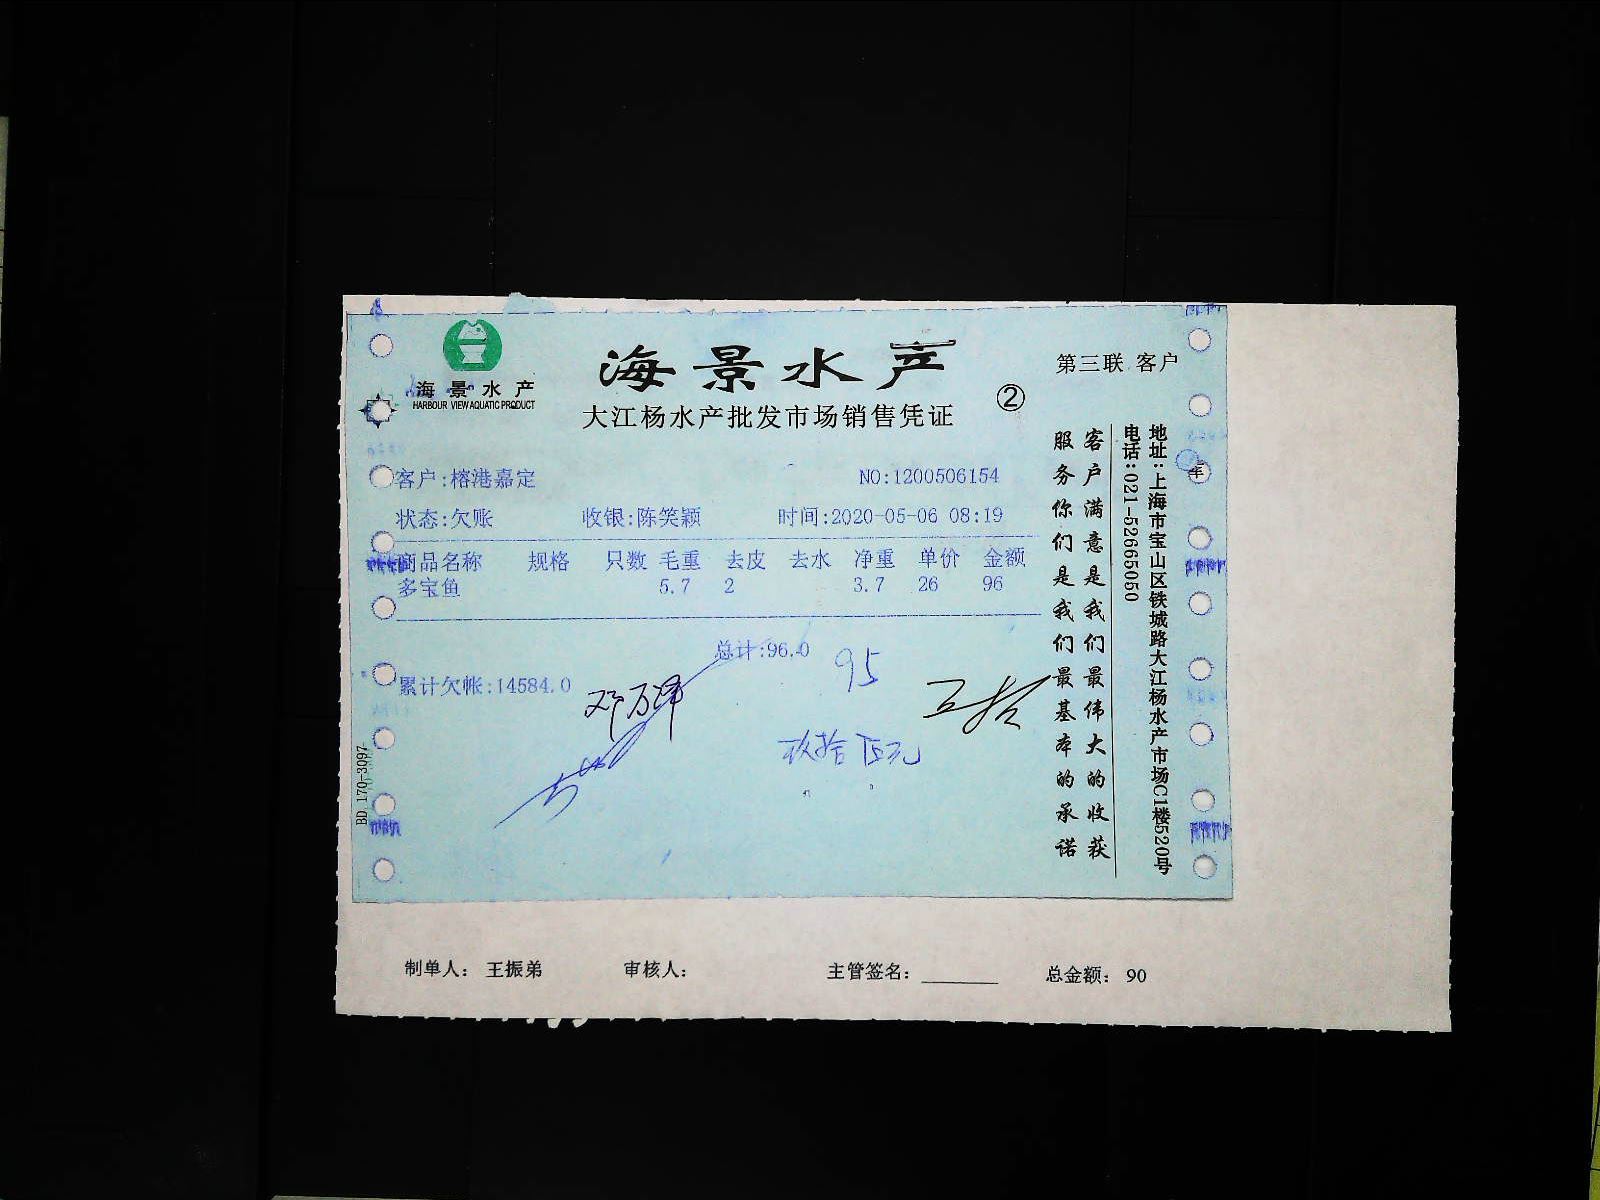 海景水产
HARBOUR VIEW AQUATIC PRODUCT
海景水产
大江杨水产批发市场销售凭证
②
第三联 客户
客户:榕港嘉定 NO:1200506154
状态:欠账 收银:陈笑颖 时间:2020-05-06 08:19
商品名称 规格 只数 毛重 去皮 去水 净重 单价 金额
多宝鱼 5.7 2 3.7 26 96
总计:96.0
95
累计欠帐:14584.0
邓万泽
玖拾伍元
客户满意是我们最伟大的收获
服务你们是我们最基本的承诺
地址:上海市宝山区铁城路大江杨水产市场C1楼520号
电话:021-52665050
BD 170-3097
制单人: 王振弟 审核人: 主管签名: 总金额: 90